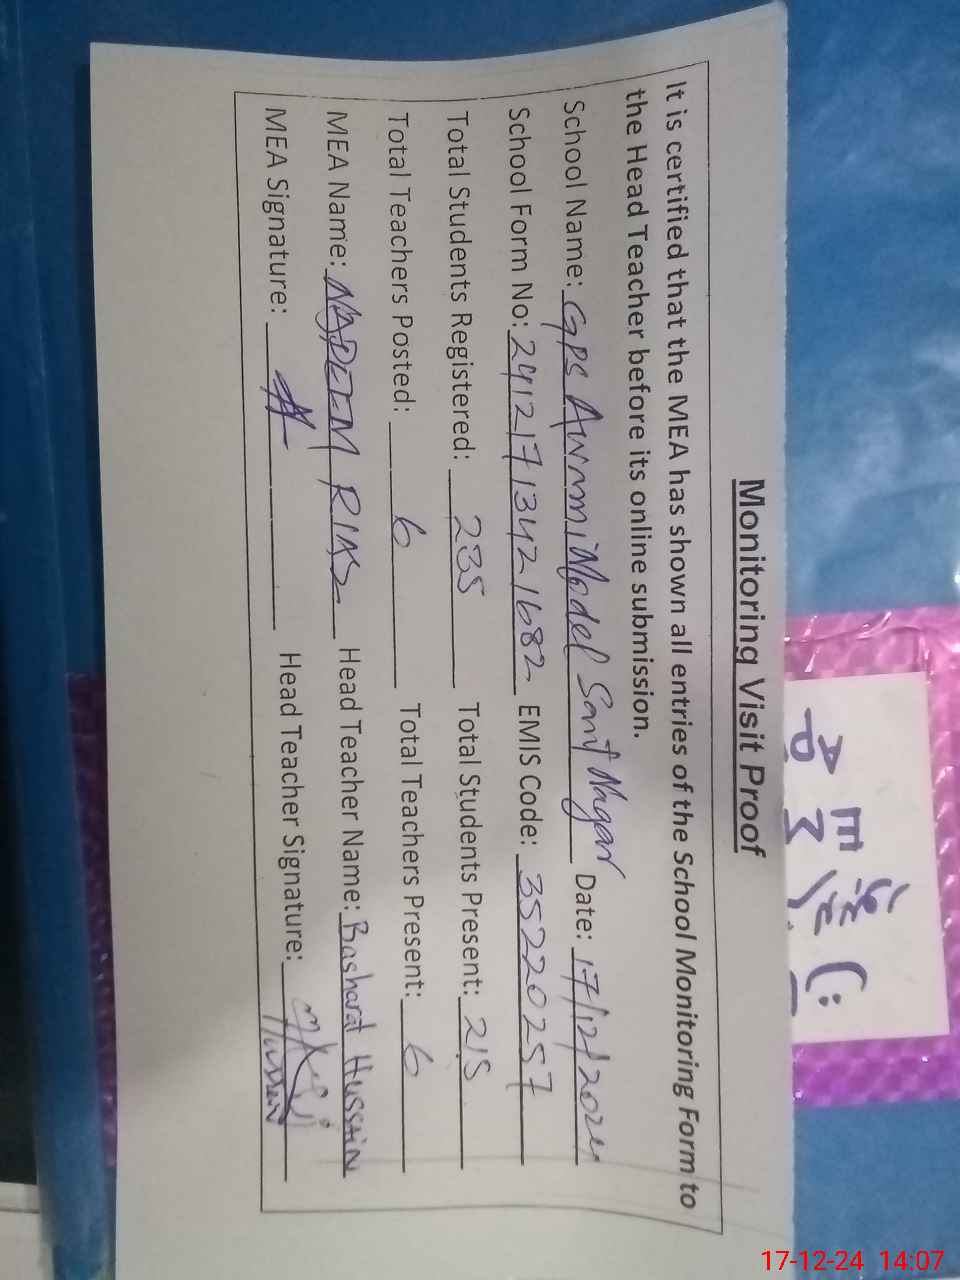 Monitoring Visit Proof
It is certified that the MEA has shown all entries of the School Monitoring Form to
the Head Teacher before its online submission.
School Name: GPS Anmmi Model Sant Nagar Date: 17/12/2024
School Form No: 241217134216 82 EMIS Code: 35220257
Total Students Registered: 235 Total Students Present: 215
Total Teachers Posted: 6 Total Teachers Present: 6
MEA Name: NADEEM RIAZ Head Teacher Name: Basharat Hussain
MEA Signature: Head Teacher Signature:
17-12-24 14:07